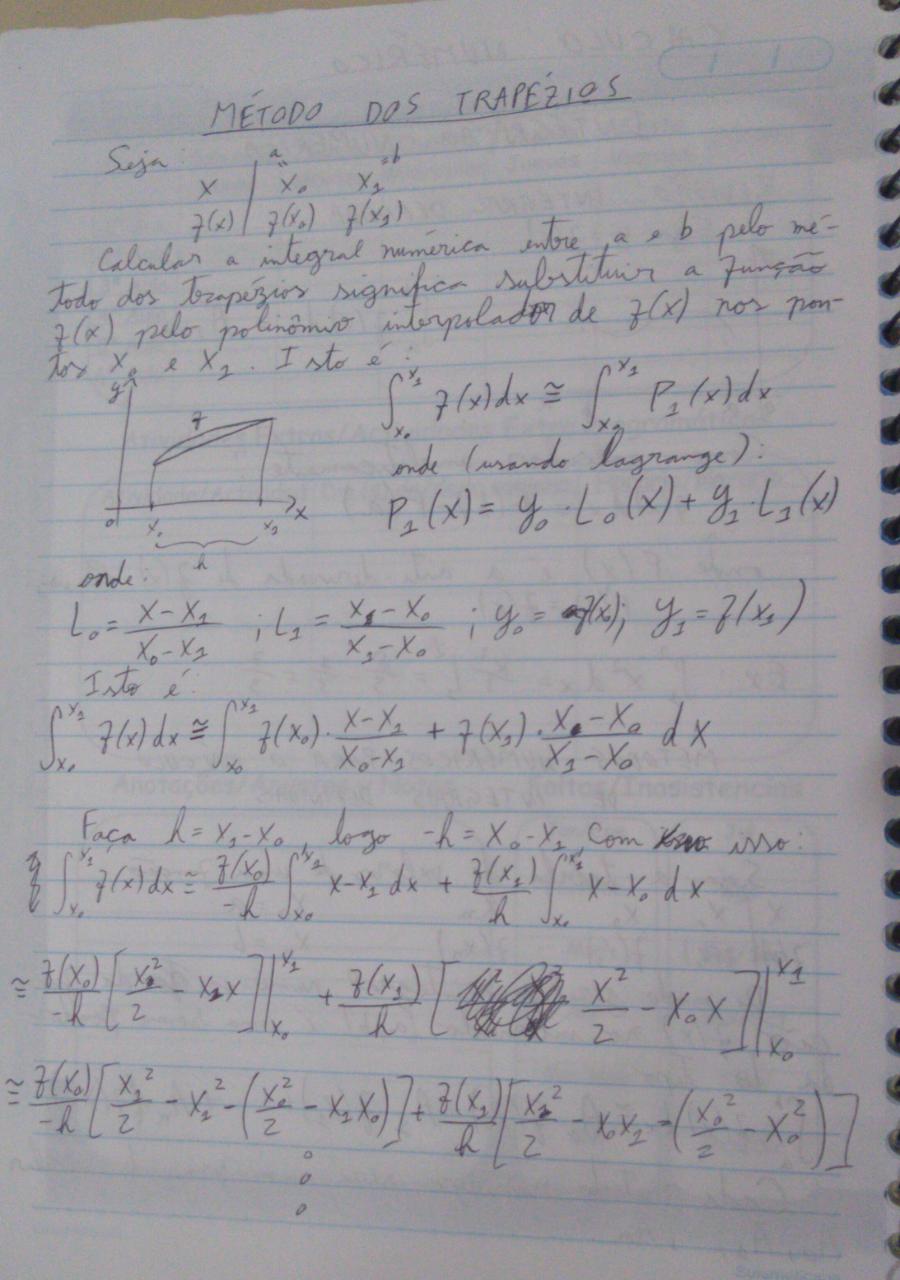 MÉTODO DOS TRAPÉZIOS
Seja:
a b
" =
x | x₀ x₁
f(x) | f(x₀) f(x₁)
Calcular a integral numérica entre a e b pelo mé-
todo dos trapézios significa substituir a função
f(x) pelo polinômio interpolador de f(x) nos pon-
tos x₀ e x₁. Isto é:
y f 0 x₀ x₁ x h
∫_{x₀}^{x₁} f(x)dx ≅ ∫_{x₀}^{x₁} P₁(x)dx
onde (usando lagrange):
P₁(x) = y₀·L₀(x) + y₁·L₁(x)
onde:
L₀ = (x-x₁)/(x₀-x₁) ; L₁ = (x-x₀)/(x₁-x₀) ; y₀ = f(x₀); y₁ = f(x₁)
Isto é:
∫_{x₀}^{x₁} f(x)dx ≅ ∫_{x₀}^{x₁} f(x₀)·(x-x₁)/(x₀-x₁) + f(x₁)·(x-x₀)/(x₁-x₀) dx
Faça h = x₁-x₀, logo -h = x₀-x₁, Com isso:
∫_{x₀}^{x₁} f(x)dx ≅ f(x₀)/-h ∫_{x₀}^{x₁} x-x₁ dx + f(x₁)/h ∫_{x₀}^{x₁} x-x₀ dx
≅ f(x₀)/-h [x²/2 - x₁x]|_{x₀}^{x₁} + f(x₁)/h [x²/2 - x₀x]|_{x₀}^{x₁}
≅ f(x₀)/-h [x₁²/2 - x₁² - (x₀²/2 - x₁x₀)] + f(x₁)/h [x₁²/2 - x₀x₁ - (x₀²/2 - x₀²)]